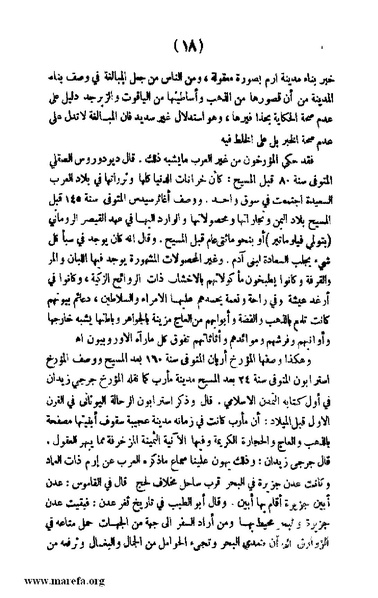 (١٨)
خبر بناء مدينة ارم بصورة معقولة ، ومن الناس من جعل المبالغة في وصف بناء
المدينة من أن قصورها من الذهب وأساطينها من الياقوت والزبرجد دليل على
عدم صحة الحكاية بحذافيرها ، وهو استدلال غير سديد فان المبالغة لاتدل على
عدم صحة الخبر بل على الخلط فيه
فقد حكي المؤرخون من غير العرب مايشبه ذلك . قال ديودروس الصقلي
المتوفى سنة ٨٠ قبل المسيح : كأن خزانات الدنيا كلها وثرواتها في بلاد العرب
السعيدة اجتمعت في سوق واحد . ووصف أغاثرسيدس المتوفى سنة ١٤٥ قبل
المسيح بلاد اليمن وتجاراتها ومحصولاتها والوارد اليها في عهد القيصر الروماني
(بتولي فيلوماتير) أو بنحو مائتي عام قبل المسيح . وقال إنه كان يوجد في سبأ كل
شيء يجلب السعادة لبني آدم . وغير المحصولات المشهورة يوجد فيها اللبان والمر
والقرفة وكانوا يطبخون مأكولاتهم بالاخشاب ذات الروائح الزكية ، وكانوا في
أرغد عيشة وفي راحة ونعمة يحسدهم عليها الامراء والسلاطين ، دعائم بيوتهم
كانت تلمع بالذهب والفضة وأبوابهم من العاج مزينة بالجواهر وباطنها يشبه خارجها
وأوانيهم وفرشهم وموائدهم وأثاثاتهم تفوق كل مارآه الاوروبيون اه
وهكذا وصفها المؤرخ أريان المتوفى سنة ١٦٠ بعد المسيح ووصف المؤرخ
استرابون المتوفى سنة ٢٤ بعد المسيح مدينة مأرب كما نقله المؤرخ جرجي زيدان
في أول كتابه التمدن الاسلامي . قال وذكر استرابون الرحالة اليوناني في القرن
الاول قبل الميلاد : أن مأرب كانت في زمانه مدينة عجيبة سقوف أبنيتها مصفحة
بالذهب والعاج والحجارة الكريمة وفيها الآنية الثمينة المزخرفة مما يبهر العقول .
قال جرجي زيدان : وذلك يهون علينا سماع ماذكره العرب عن إرم ذات العماد
وكانت عدن جزيرة في البحر قرب ساحل مخلاف لحج قال في القاموس : عدن
أبين جزيرة أقام بها أبين . وقال أبو الطيب في تاريخ ثغر عدن : فبقيت عدن
جزيرة محيط بها ومن أراد السفر الى جهة من الجهات حمل متاعه في
الزوارق البحر وتجيء الحوامل من الجمال والبغال وترفعه من
www.marefa.org